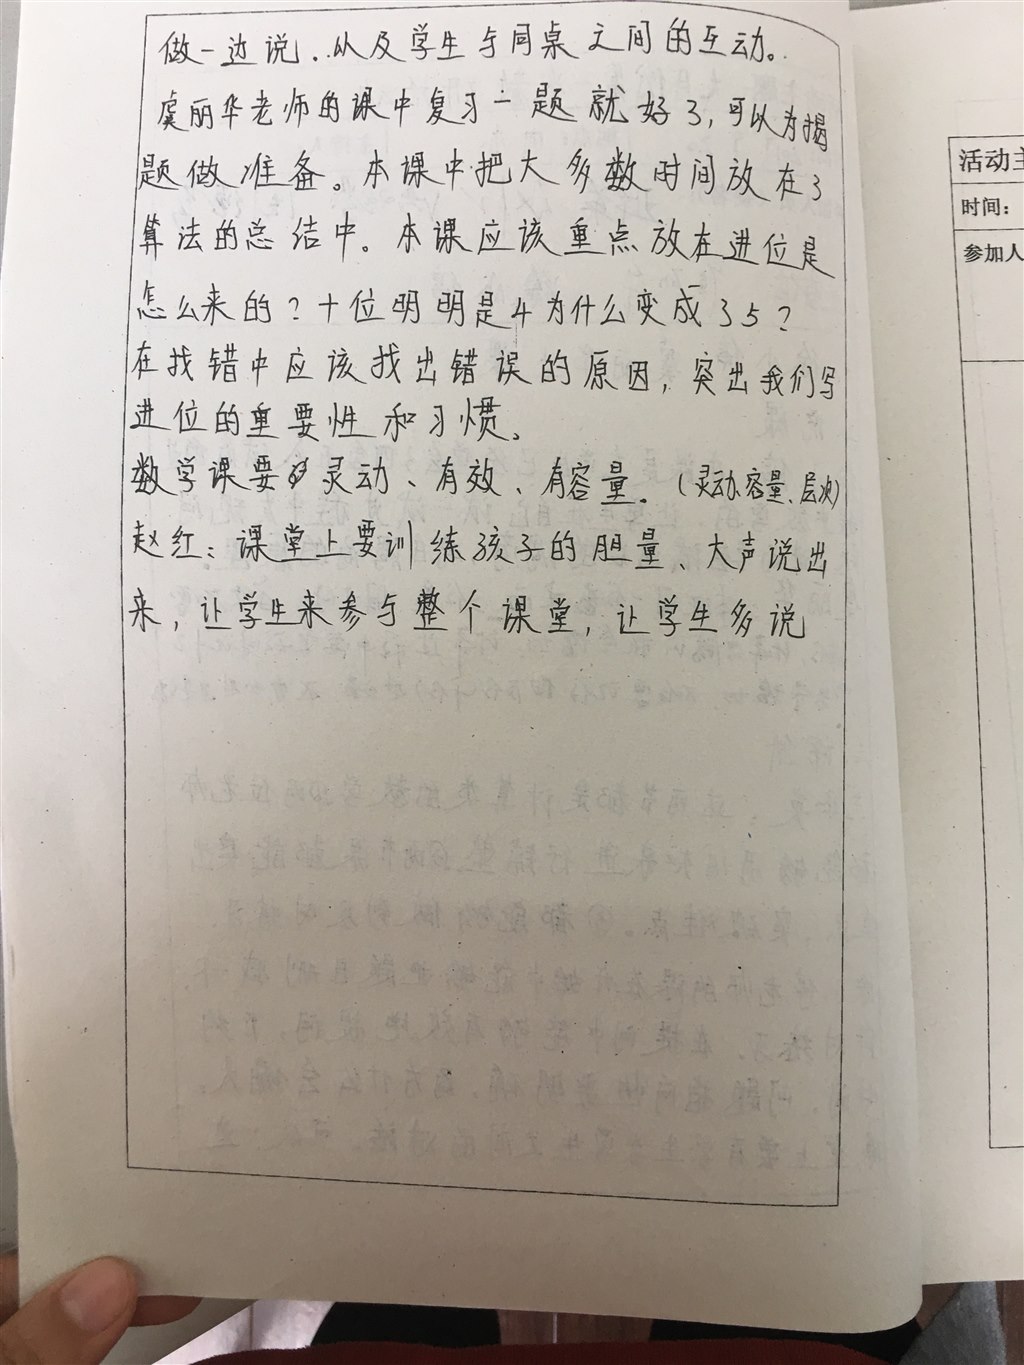 做一边说..以及学生与同桌之间的互动。
虞丽华老师的课中复习一题就好了,可以为揭
题做准备。本课中把大多数时间放在了
算法的总结中。本课应该重点放在进位是
怎么来的?十位明明是4为什么变成35?
在找错中应该找出错误的原因,突出我们写
进位的重要性和习惯。
数学课要灵动、有效、有容量。(灵动、容量、层次)
赵红:课堂上要训练孩子的胆量、大声说出
来,让学生来参与整个课堂,让学生多说
活动主
时间:
参加人